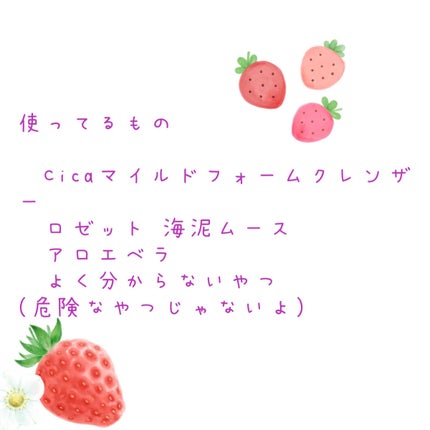 使ってるもの
Cicaマイルドフォームクレンザ
ー
ロゼット 海泥ムース
アロエベラ
よく分からないやつ
(危険なやつじゃないよ)